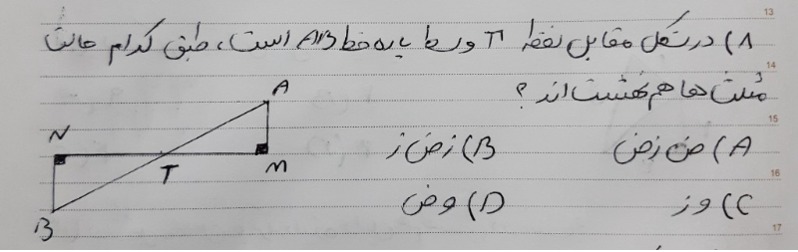 13
۸) در شکل مقابل نقطه T وسط پاره خط AB است، طبق کدام حالت
14
مثلث ها هم نهشت اند ؟
A
N
15
A) ض ز ض B) ز ض ز
T M
16
C) و ز D) و ض
B
17